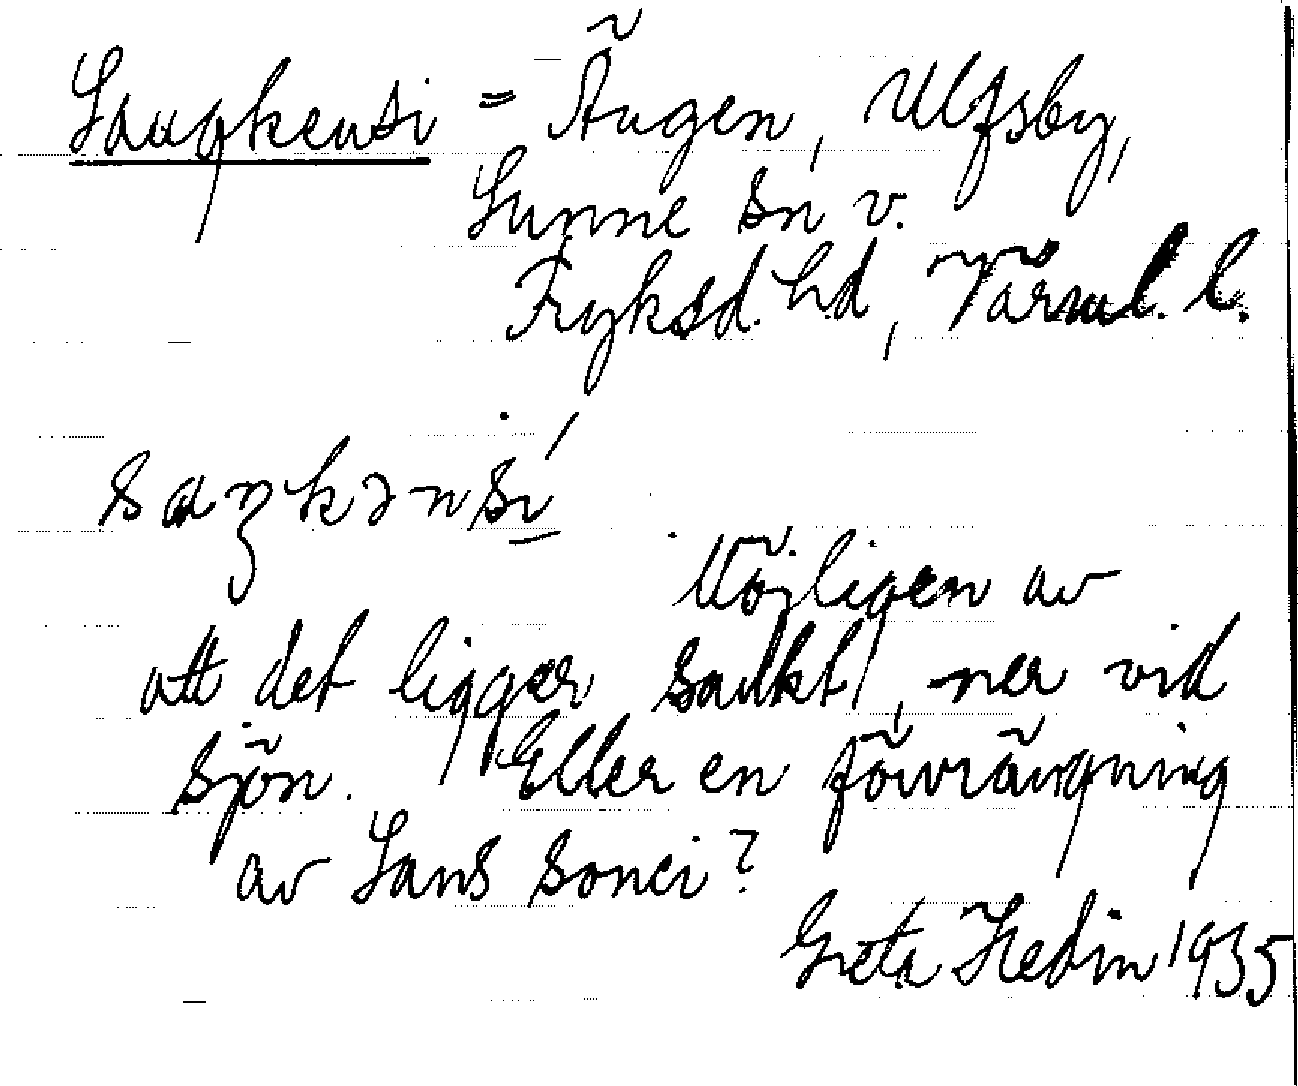 Sangkensi = Ängen, Ulfsby,
Sunne sn v.
Fryksd. hd, Värml. l.
saŋkənsí
Möjligen av
att det ligger sankt, ner vid
sjön. Eller en förvrängning
av Sans souci?
Greta Hedin 1935